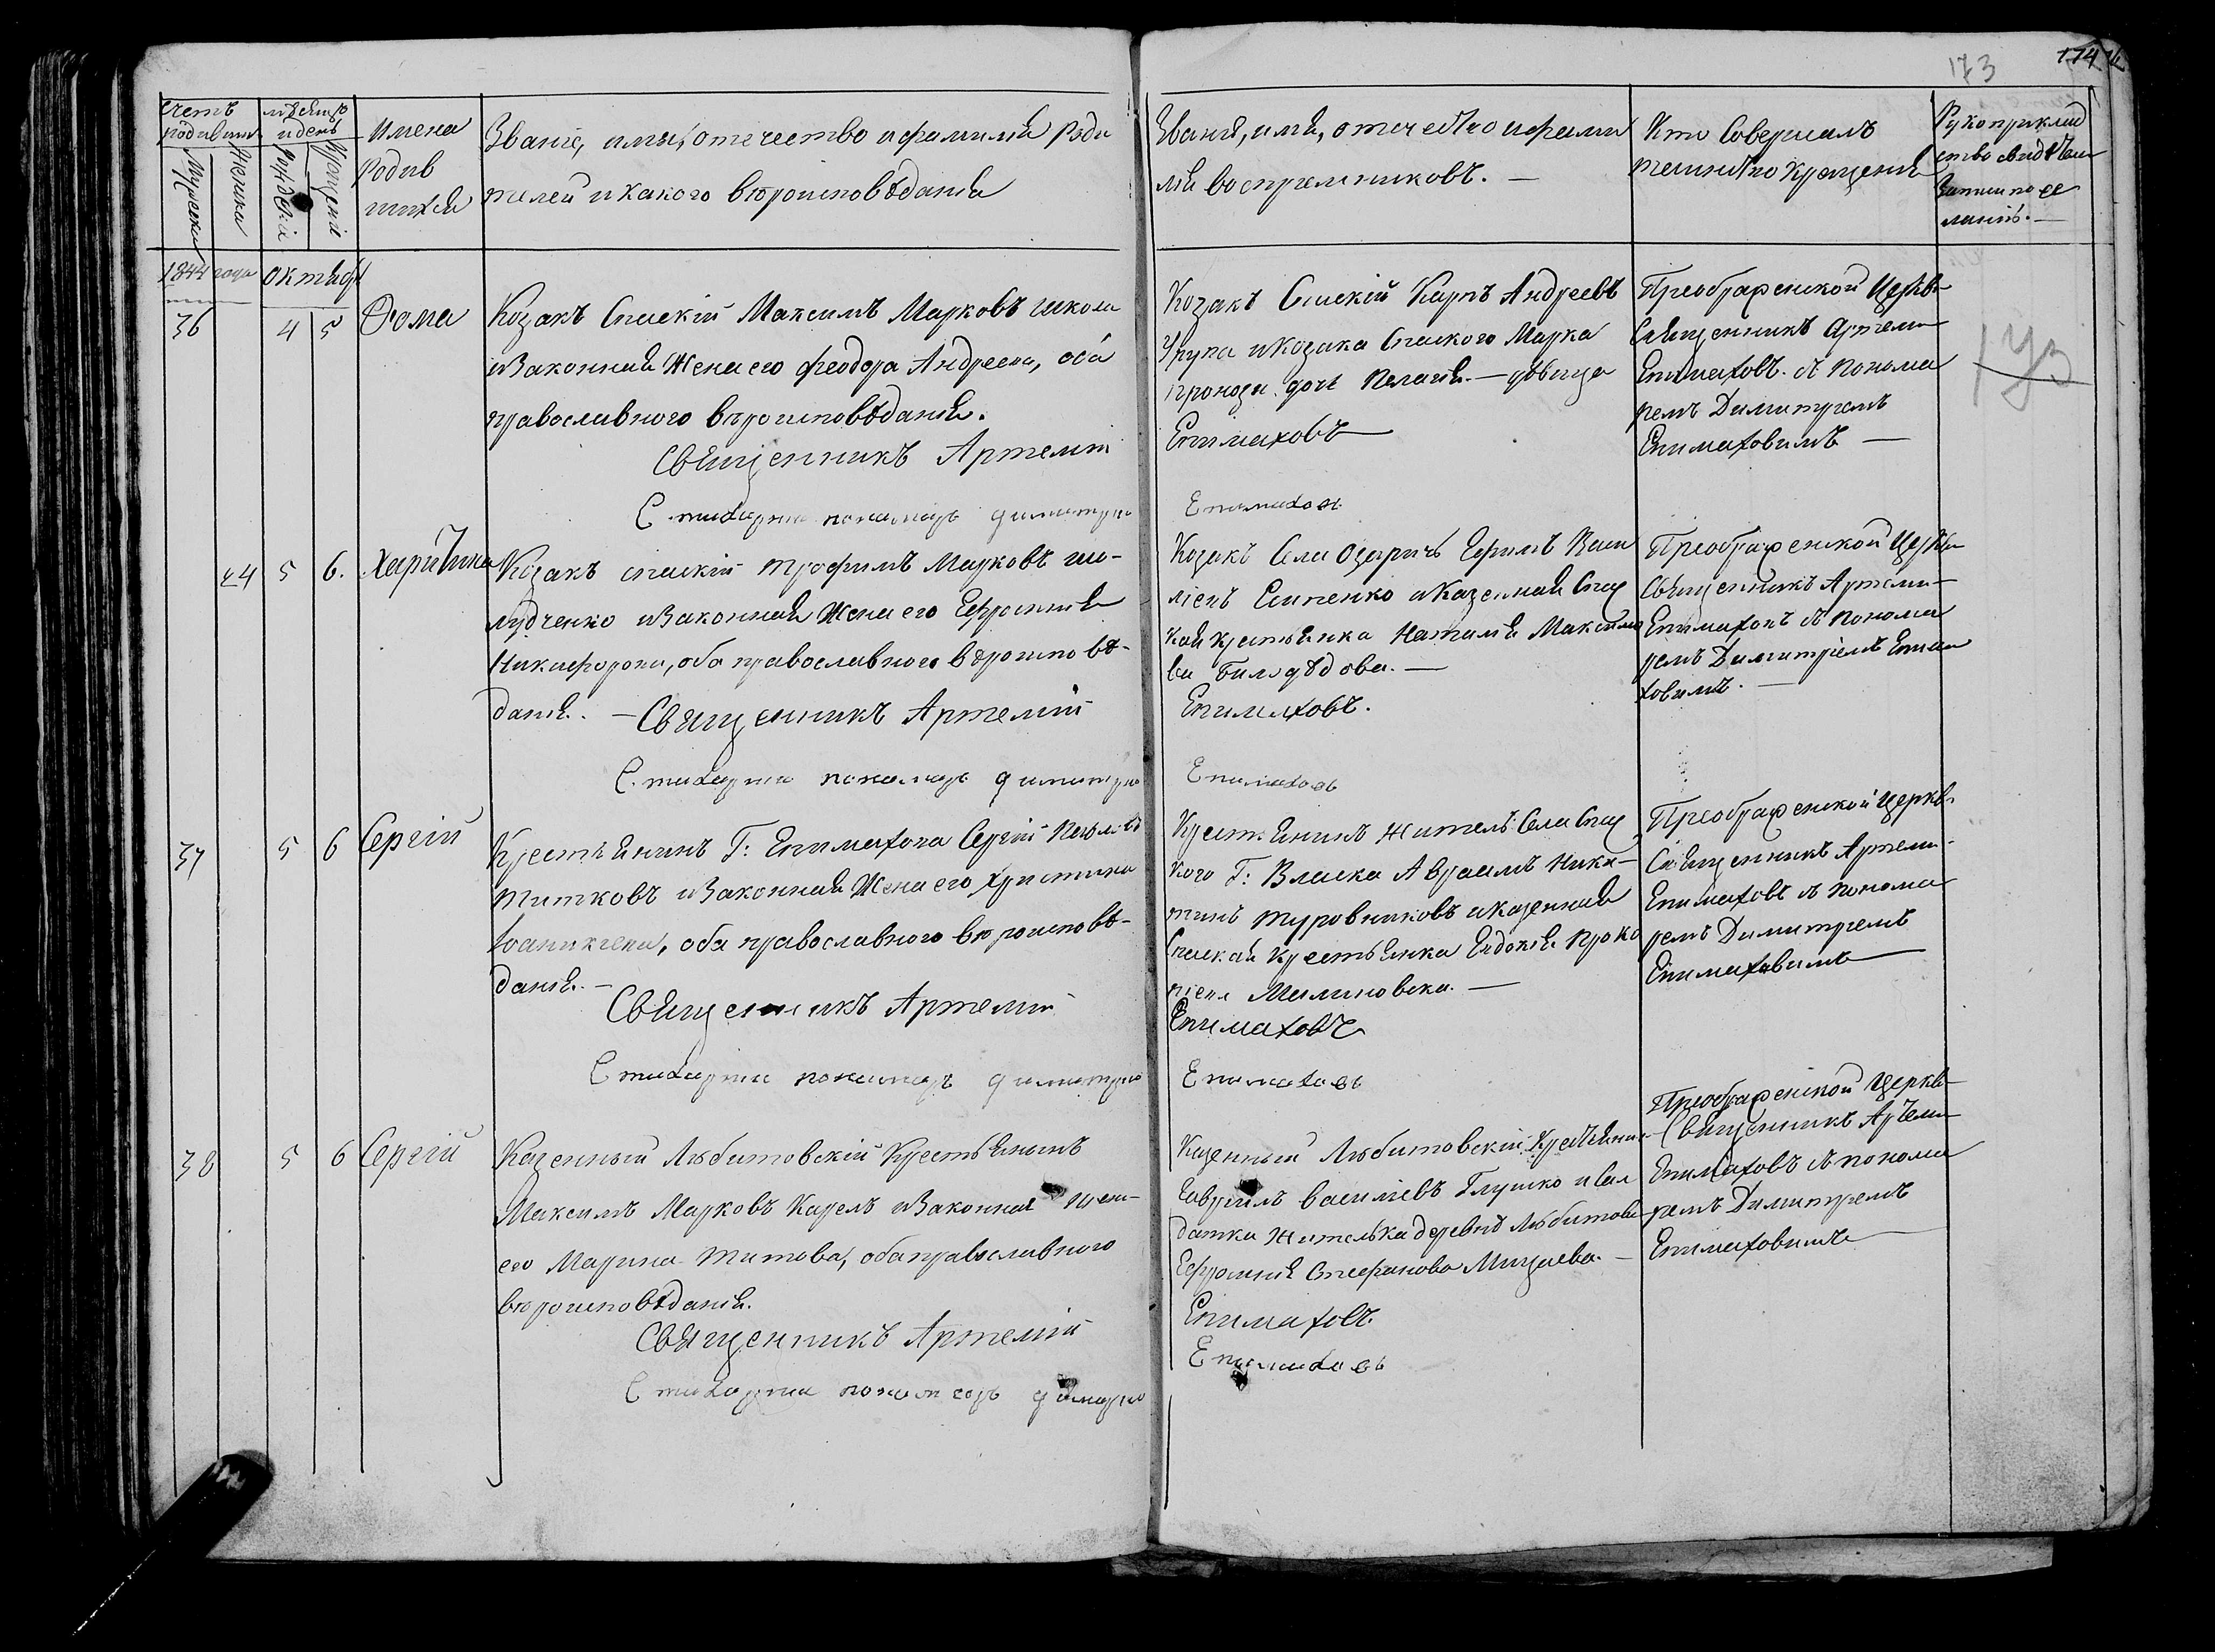 173
174
Счетъ родившихся
Мужеска
Женска
мѣсяцъ и день
рожденія
крещенія
Имена
Родив
шихся
Званіе, имя, отечество и фамилія Роди
телей и какого вѣроисповѣданія
Званія, имя, отечество и фами
лія воспріемниковъ. —
Кто Совершалъ
таинство Крещенія
Рукоприклад
ство свидѣтелей
записи по же
ланію. —
1844 года
октября
36
4
5
Ѳома
Козакъ Спаскій Максимъ Марковъ
и Законная Жена его Феодора Андреева, оба
православного вѣроисповѣданія.
Священникъ Артемій
Стихарни пономарь димитрій
Козакъ Спаскій Карпъ Андреевъ
и Козака Спаского Марка
дочь Пелагія. — дѣвица
Епимаховъ
Епимаховъ
Преображенской Церкви
Священникъ Артемій
Епимаховъ съ Понома
ремъ Димитріемъ
Епимаховимъ —
173
24
5
6.
Харитина
Козакъ спаскій Трофимъ Марковъ ше-
лудченко и Законная Жена его Ефросинія
Никифорова, оба православного вѣроисповѣ-
данія. — Священникъ Артемій
Стихарни пономарь димитрій
Козакъ Села Озаричъ Ефимъ Васи
ліевъ Есипенко и Казенная Спас
кая крестьянка Наталія Максимо
ва Билодѣдова. —
Епимаховъ.
Епимаховъ
Преображенской Церкви
Священникъ Артемій
Епимаховъ съ Понома
ремъ Димитріемъ Епима
ховимъ. —
37
5
6
Сергій
Крестьянинъ Г: Епимахова Сергій
Титковъ и Законная Жена его Христина
Іоаникіева, оба православного вѣроисповѣ-
данія. —
Священникъ Артемій
Стихарни пономарь димитрій
Крестьянинъ житель Села Спас
кого Г: Власка Авраамъ Ники-
тинъ Туровниковъ и Казенная
Спаская Крестьянка Евдокія Проко
піева Малиновска. —
Епимаховъ
Епимаховъ
Преображенской Церкви
Священникъ Артемій
Епимаховъ съ Понома
ремъ Димитріемъ
Епимаховимъ
38
5
6
Сергій
Казенный Любитовскій Крестьянинъ
Максимъ Марковъ Карелъ и Законная Жена
его Марина Титова, оба православного
вѣроисповѣданія.
Священникъ Артемій
Стихарни пономарь димитрій
Казенный Любитовскій Крестьянинъ
Гавріилъ Василіевъ Глушко и Сал
датка жителька деревнѣ Любитова
Ефросинія Стефанова Мицаева. —
Епимаховъ.
Епимаховъ
Преображенской Церкви
Священникъ Артемій
Епимаховъ съ понома
ремъ Димитріемъ
Епимаховимъ